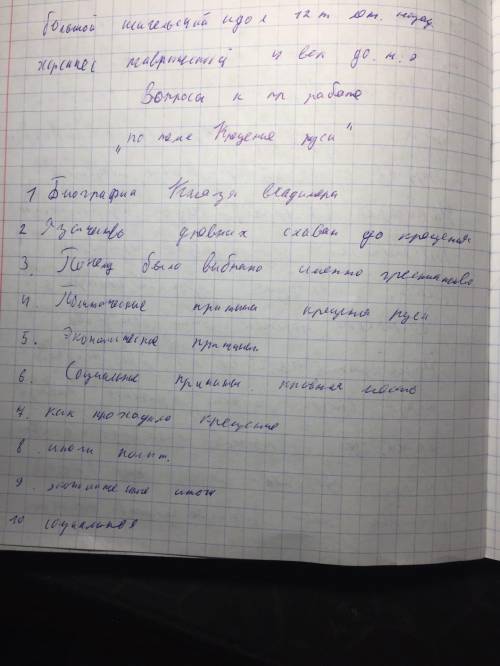 большой шигельский идол 12 т лет. назад
херсонес таврический v век до. н. э
Вопросы к пр работе
"по теме Крещение руси"
1 Биография Князя владимера
2 Язычество древних славян до крещения
3. Почему было выбрано именно християнство
4. Политические причины крещения руси
5. Экономические причины
6. Социальные причины. кровная месть
7. как проходило крещение
8. итоги полит.
9. экономические итоги
10 социальная